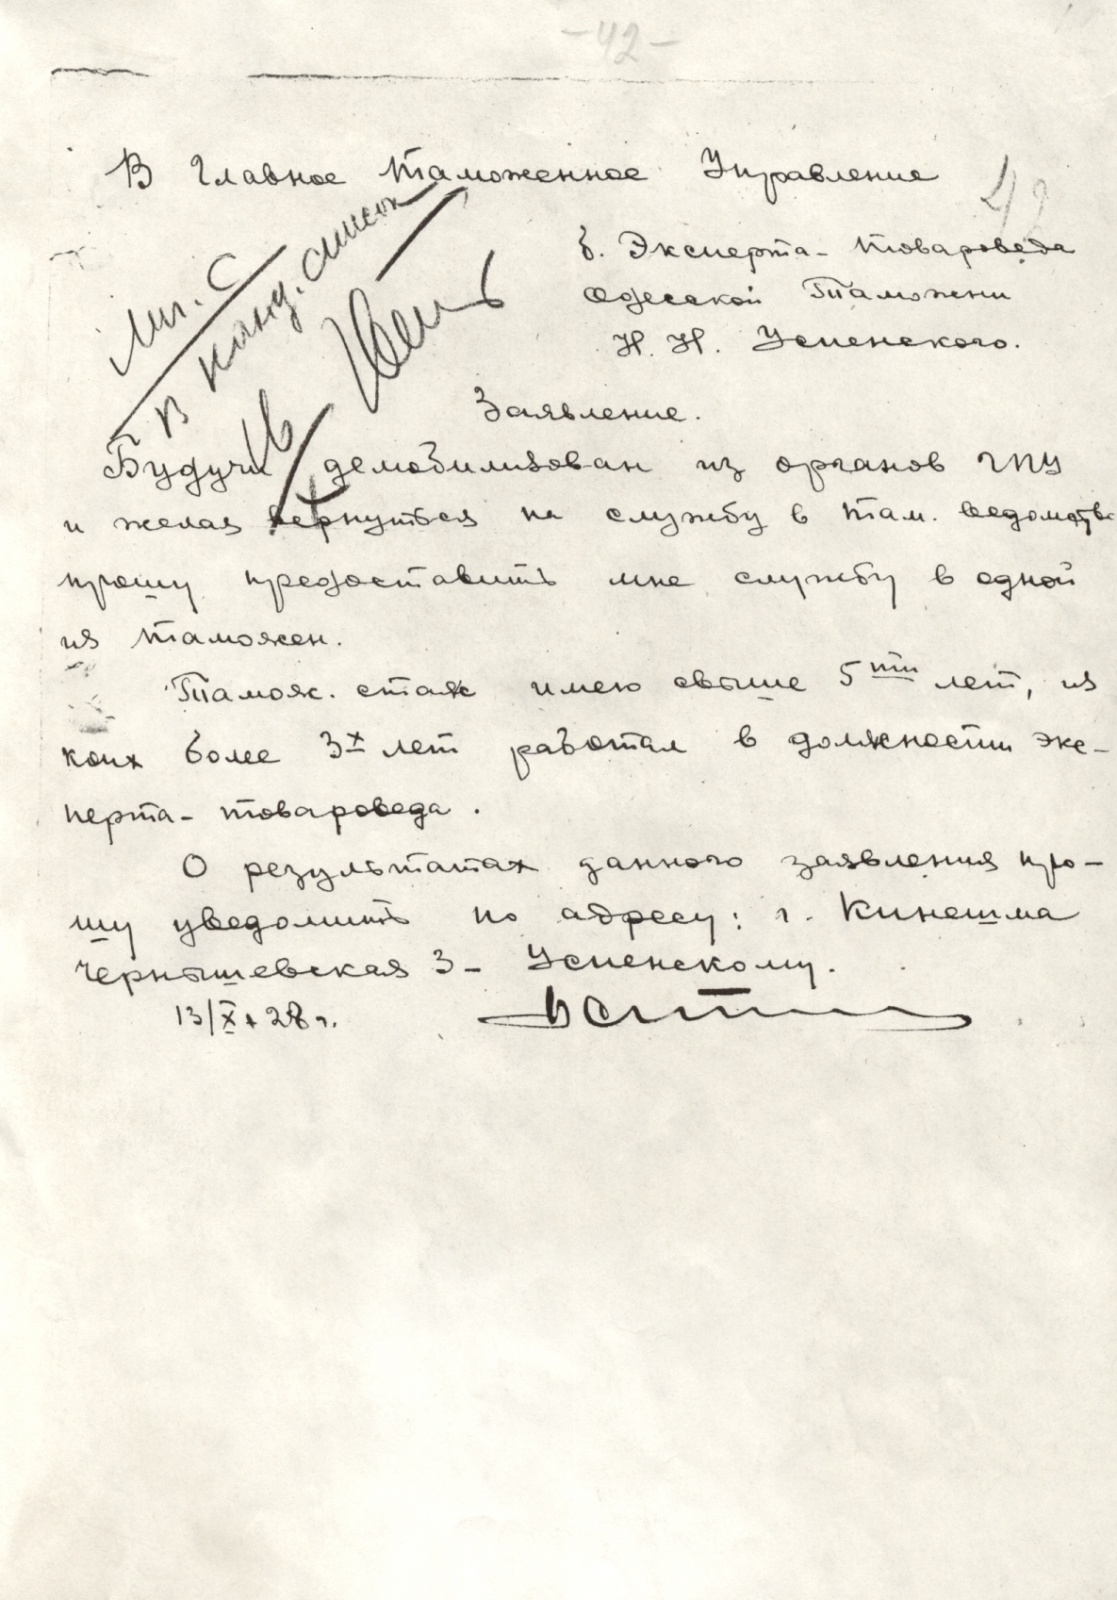 -42-
В Главное Таможенное Управление
42
б. Эксперта-товароведа
Одесской Таможни
Н. Н. Успенского.
В канд. список
Заявление.
Будучи демобилизован из органов ГПУ
и желая вернуться на службу в там. ведомство
прошу предоставить мне службу в одной
из таможен.
Тамож. стаж имею свыше 5ти лет, из
коих более 3х лет работал в должности экс-
перта-товароведа.
О результатах данного заявления про-
шу уведомить по адресу: г. Кинешма
Чернышевская 3- Успенскому.
13/X 28 г.